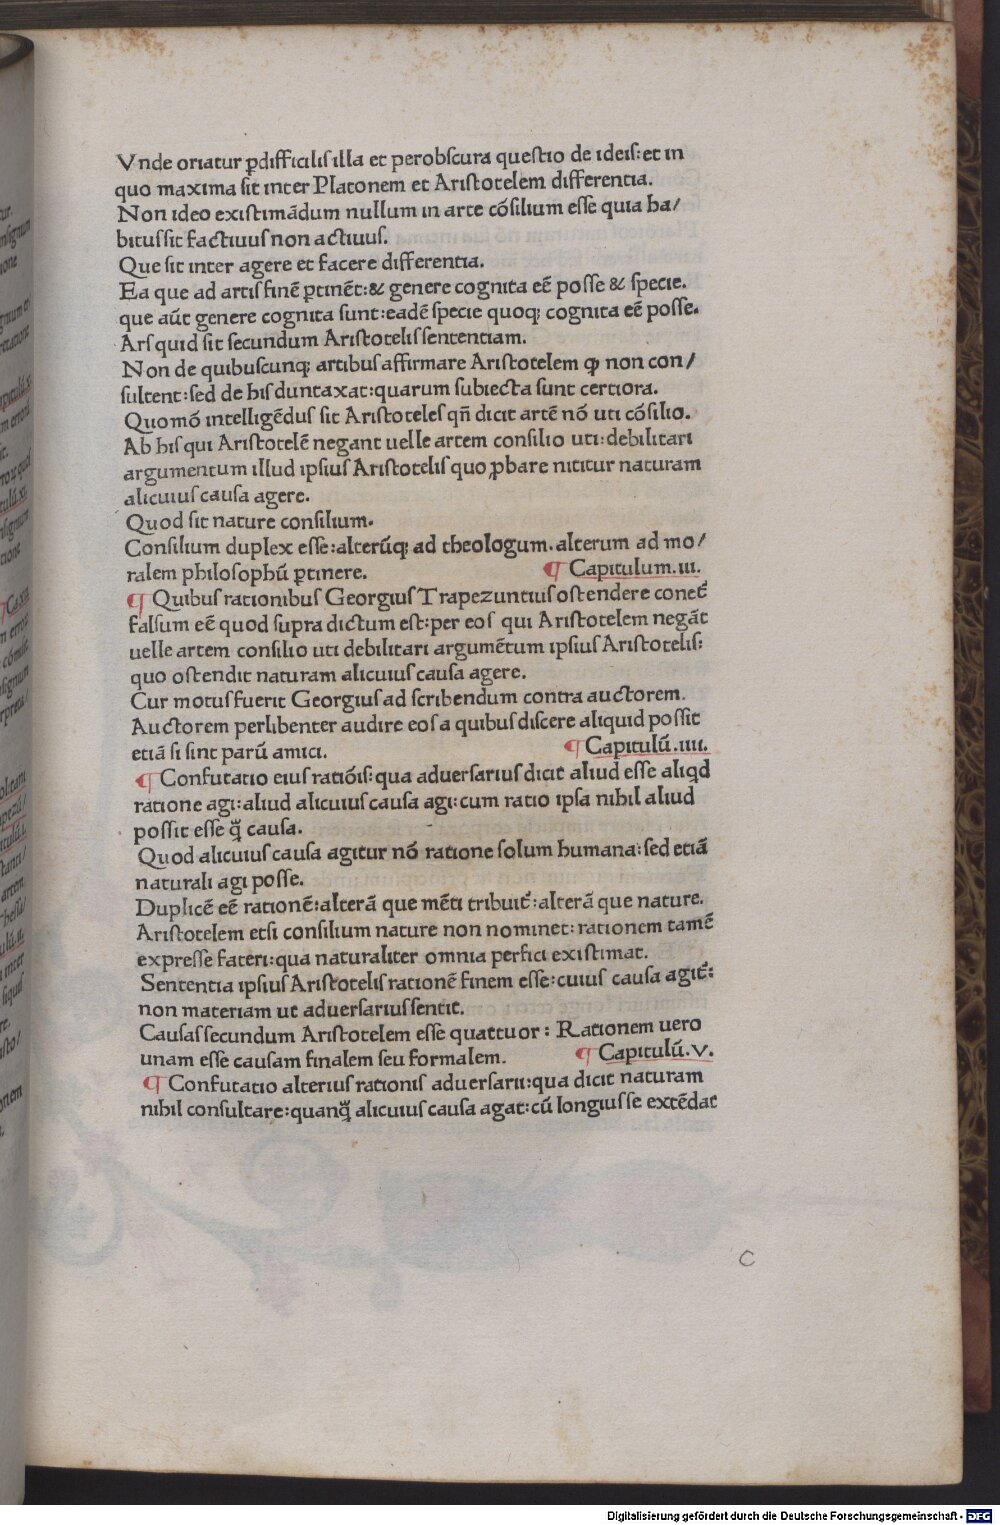 Vnde oriatur ꝑdifficilis illa et perobscura questio de ideis: et in
quo maxima sit inter Platonem et Aristotelem differentia.
Non ideo existimādum nullum in arte cōsilium esse quia ha/
bitus sit factiuus non actiuus.
Que sit inter agere et facere differentia.
Ea que ad artis finē ꝑtinēt: & genere cognita eē posse & specie.
que aūt genere cognita sunt: eadē specie quoq; cognita eē posse.
Ars quid sit secundum Aristotelis sententiam.
Non de quibuscunq; artibus affirmare Aristotelem ꝙ non con/
sultent: sed de his duntaxat: quarum subiecta sunt certiora.
Quomō intelligēdus sit Aristoteles qn̄ dicit artē nō uti cōsilio.
Ab his qui Aristotelē negant uelle artem consilio uti: debilitari
argumentum illud ipsius Aristotelis quo ꝓbare nititur naturam
alicuius causa agere.
Quod sit nature consilium.
Consilium duplex esse: alterūq; ad theologum. alterum ad mo/
ralem philosophū ꝑtinere. ¶ Capitulum .iii.
¶ Quibus rationibus Georgius Trapezuntius ostendere conet᷑
falsum eē quod supra dictum est: per eos qui Aristotelem negāt
uelle artem consilio uti debilitari argumētum ipsius Aristotelis:
quo ostendit naturam alicuius causa agere.
Cur motus fuerit Georgius ad scribendum contra auctorem.
Auctorem perlibenter audire eos a quibus discere aliquid possit
etiā si sint parū amici. ¶ Capitulū .iiii.
¶ Confutatio eius ratiōis: qua aduersarius dicit aliud esse aliqd
ratione agi: aliud alicuius causa agi: cum ratio ipsa nihil aliud
possit esse q̄̃ causa.
Quod alicuius causa agitur nō ratione solum humana: sed etiā
naturali agi posse.
Duplicē eē rationē: alterā que mēti tribuit᷑: alterā que nature.
Aristotelem etsi consilium nature non nominet: rationem tamē
expresse fateri: qua naturaliter omnia perfici existimat.
Sententia ipsius Aristotelis rationē finem esse: cuius causa agit᷑:
non materiam ut aduersarius sentit.
Causas secundum Aristotelem esse quattuor: Rationem uero
unam esse causam finalem seu formalem. ¶ Capitulū .v.
¶ Confutatio alterius rationis aduersarii: qua dicit naturam
nihil consultare: quanq̄̃ alicuius causa agat: cū longius se extēdat
c
Digitalisierung gefördert durch die Deutsche Forschungsgemeinschaft - DFG